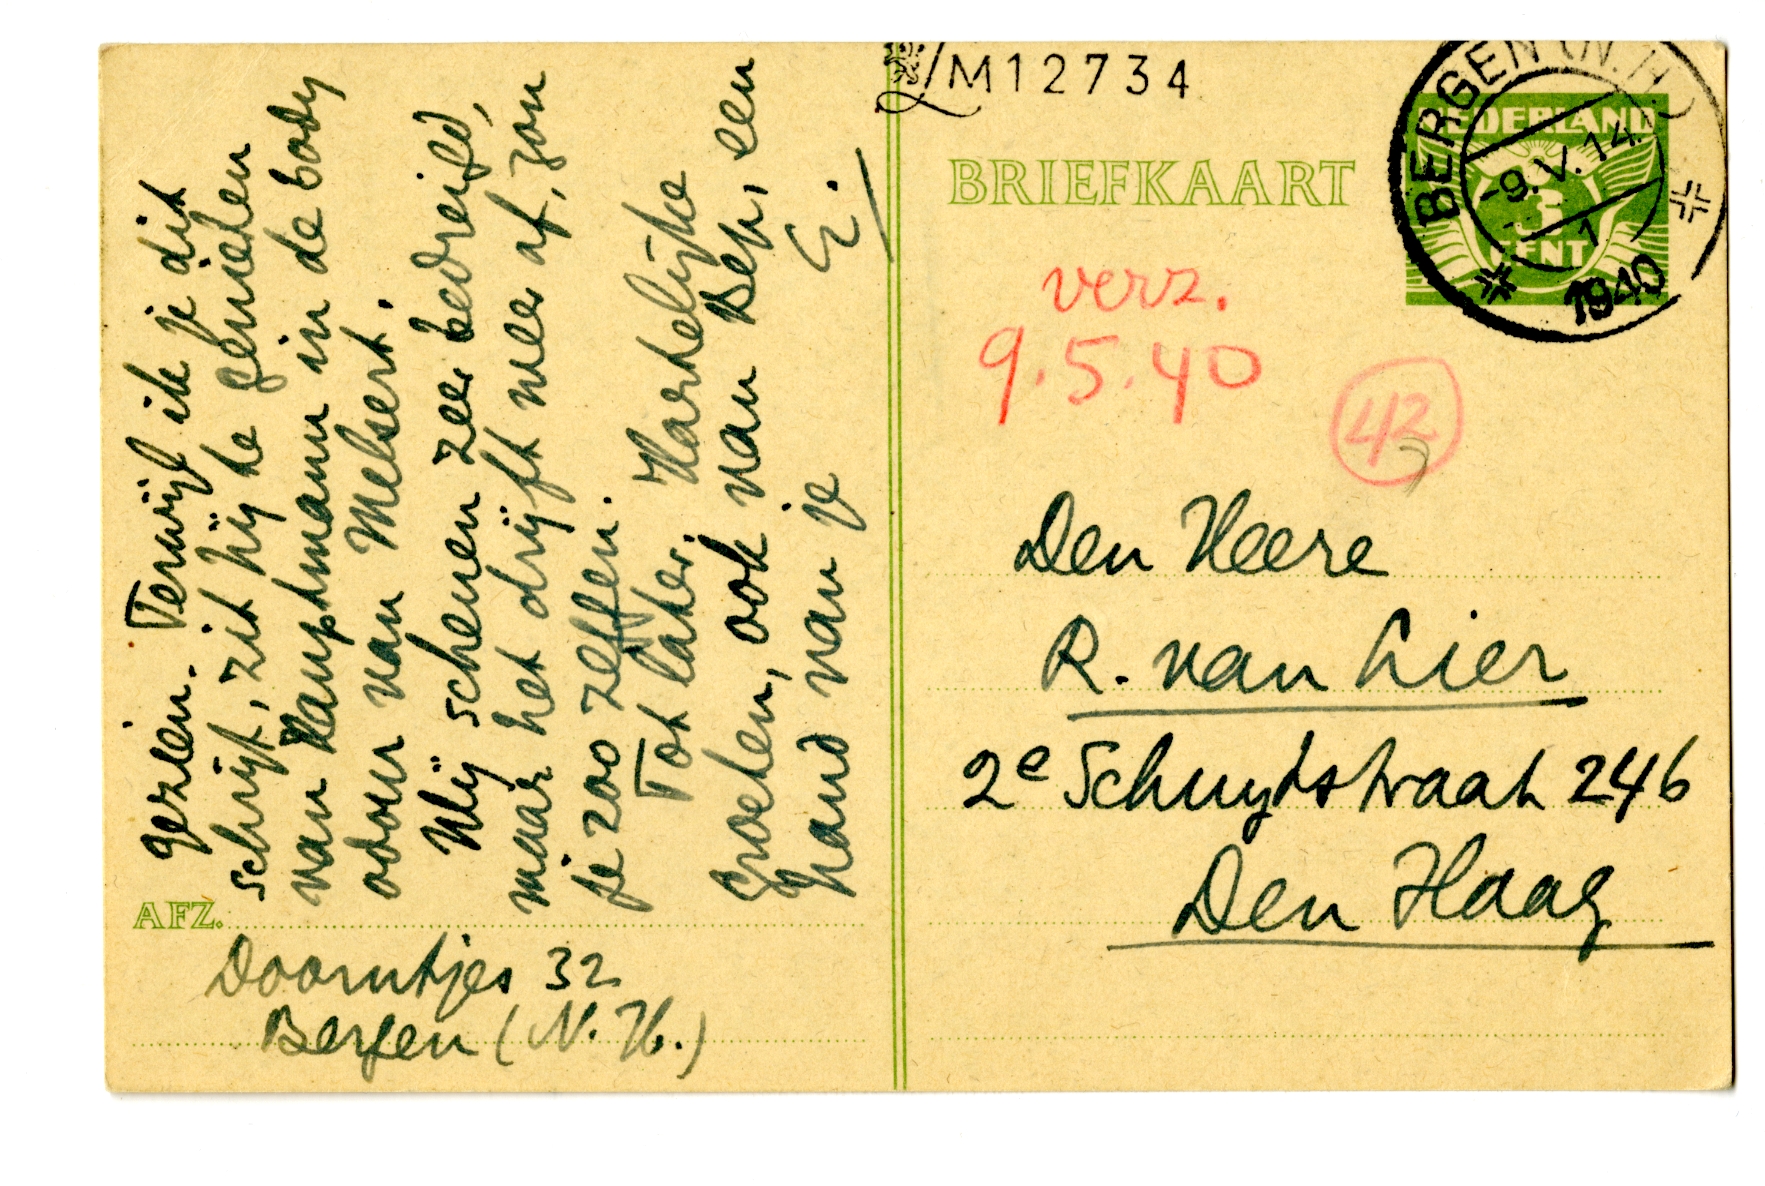 gezien. Terwijl ik je dit
schrijf, zit hij te genieten
van Hauptmann in de body
odour van Melsert.
Wij schenen zeer bedreigd,
maar het drijft weer af, zou
je zoo zeggen.
Tot later. Hartelijke
groeten, ook van Bep, een
hand van je
E.
AFZ.
Doorntjes 32
Bergen (N.H.)
M12734
BRIEFKAART
NEDERLAND
3
CENT
BERGEN (N.H.)
-9.V.14
1
1940
verz.
9.5.40
42
Den Heere
R. van Lier
2e Schuytstraat 246
Den Haag